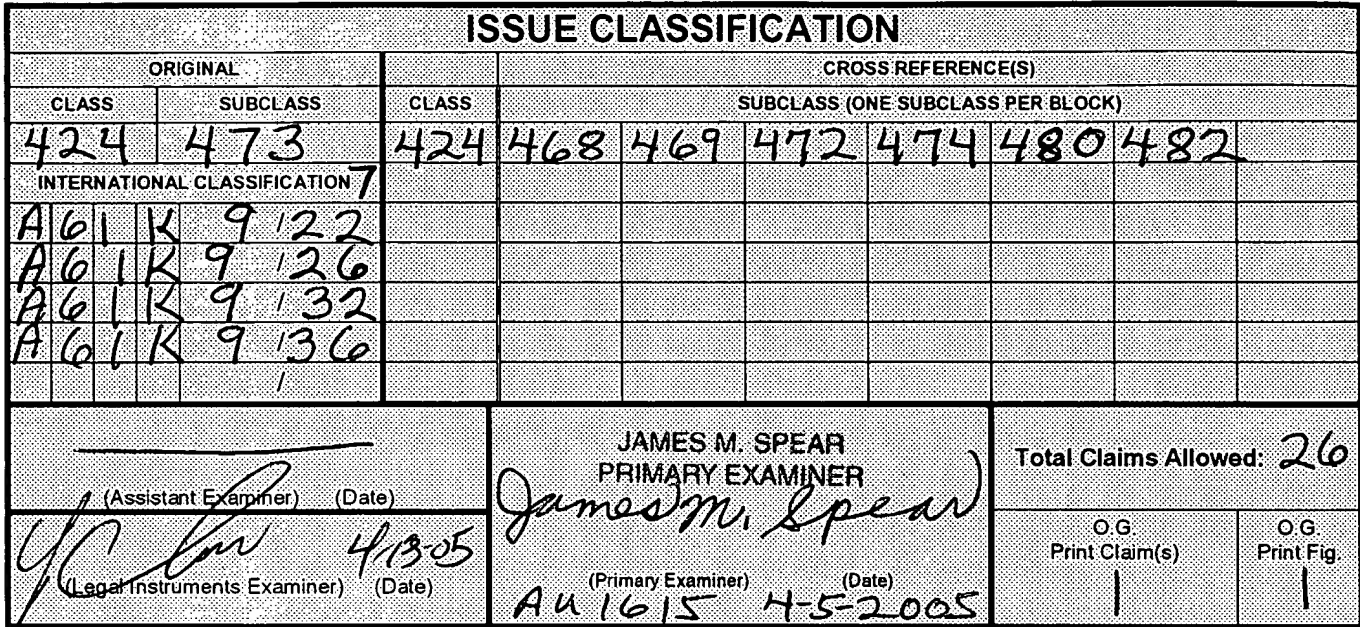 ISSUE CLASSIFICATION
ORIGINAL CROSS REFERENCE(S)
CLASS SUBCLASS CLASS SUBCLASS (ONE SUBCLASS PER BLOCK)
424 473 424 468 469 472 474 480 482
INTERNATIONAL CLASSIFICATION 7
A61K 9/22
A61K 9/26
A61K 9/32
A61K 9/36
/
(Assistant Examiner) (Date)
4-13-05
(Legal Instruments Examiner) (Date)
JAMES M. SPEAR
PRIMARY EXAMINER
James M. Spear
(Primary Examiner) (Date)
AU 1615 4-5-2005
Total Claims Allowed: 26
O.G. Print Claim(s) O.G. Print Fig.
1 1